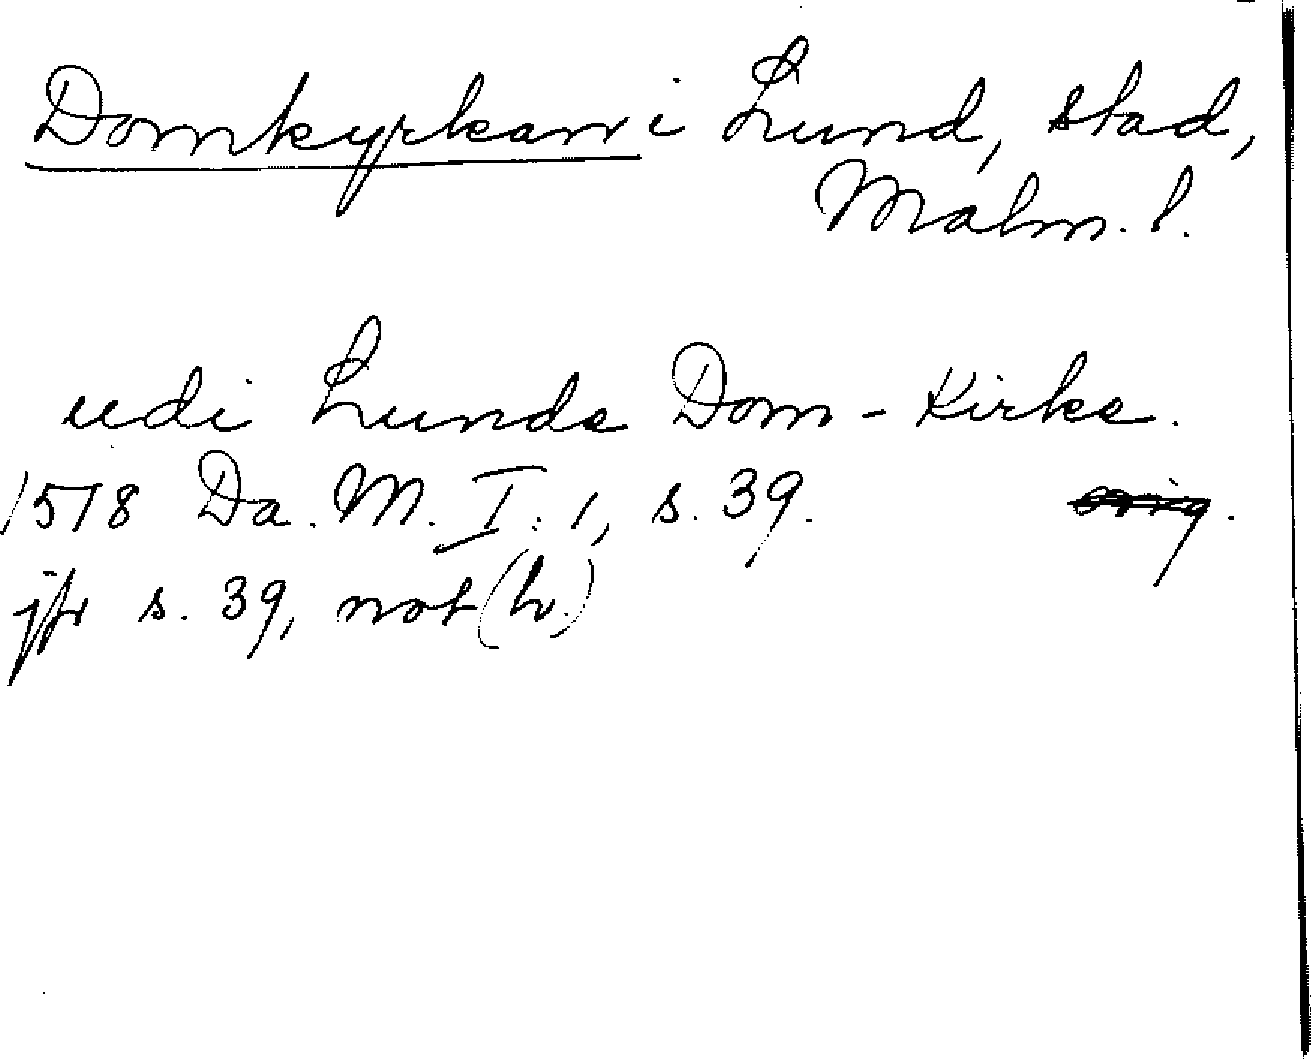 Domkyrkan i Lund, stad,
Malm. l.
udi Lunde Dom-Kirke.
1578 Da. M. I: 1, s. 39. orig.
jfr s. 39, not (h.)